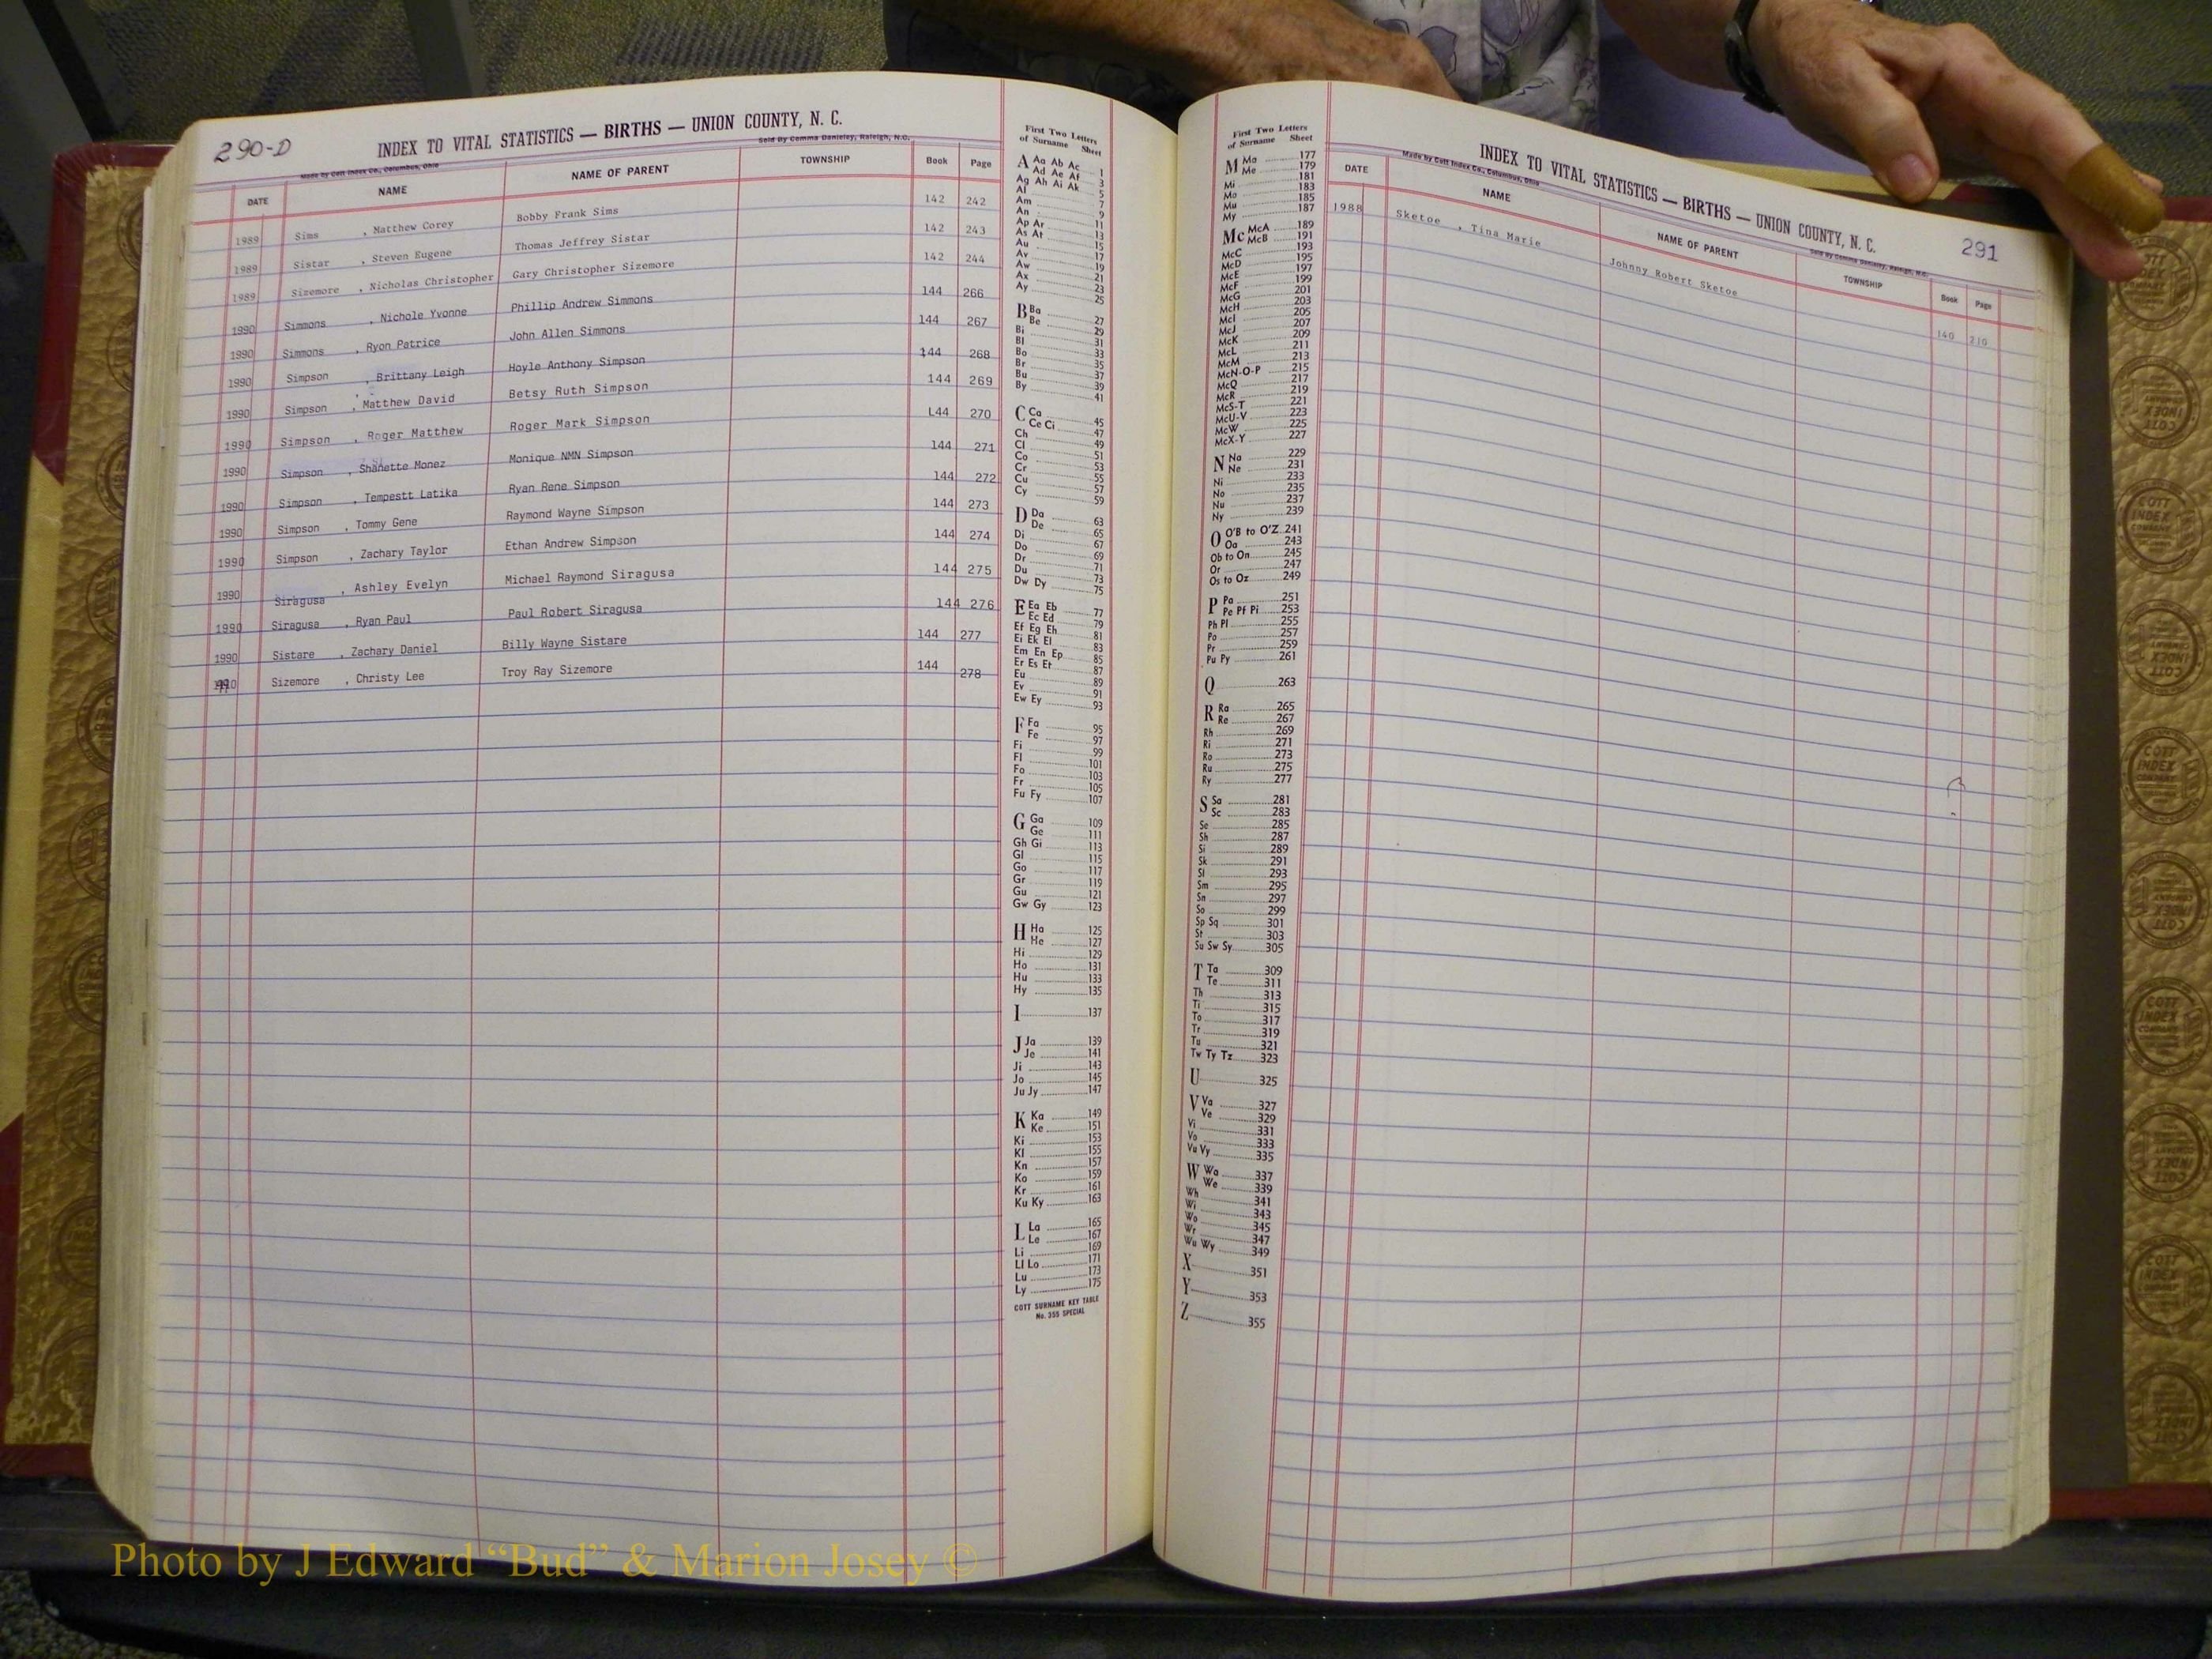 290-D
INDEX TO VITAL STATISTICS — BIRTHS — UNION COUNTY, N. C.
Made by Cott Index Co., Columbus, Ohio
Sold By Comma Danieley, Raleigh, N.C.
DATE NAME NAME OF PARENT TOWNSHIP Book Page
1989 Sims , Matthew Corey Bobby Frank Sims 142 242
1989 Sistar , Steven Eugene Thomas Jeffrey Sistar 142 243
1989 Sizemore , Nicholas Christopher Gary Christopher Sizemore 142 244
1990 Simmons , Nichole Yvonne Phillip Andrew Simmons 144 266
1990 Simmons , Ryon Patrice John Allen Simmons 144 267
1990 Simpson , Brittany Leigh Hoyle Anthony Simpson 144 268
1990 Simpson , Matthew David Betsy Ruth Simpson 144 269
1990 Simpson , Roger Matthew Roger Mark Simpson L44 270
1990 Simpson , Shanette Monez Monique NMN Simpson 144 271
1990 Simpson , Tempestt Latika Ryan Rene Simpson 144 272
1990 Simpson , Tommy Gene Raymond Wayne Simpson 144 273
1990 Simpson , Zachary Taylor Ethan Andrew Simpson 144 274
1990 Siragusa , Ashley Evelyn Michael Raymond Siragusa 144 275
1990 Siragusa , Ryan Paul Paul Robert Siragusa 144 276
1990 Sistare , Zachary Daniel Billy Wayne Sistare 144 277
Sizemore , Christy Lee Troy Ray Sizemore 144 278
First Two Letters
of Surname Sheet
A Aa Ab Ac
Ad Ae Af 1
Ag Ah Ai Ak 3
Al 5
Am 7
An 9
Ap Ar 11
As At 13
Au 15
Av 17
Aw 19
Ax 21
Ay 23
25
B Ba 27
Be 29
Bi 31
Bl 33
Bo 35
Br 37
Bu 39
By 41
C Ca 45
Ce Ci 47
Ch 49
Cl 51
Co 53
Cr 55
Cu 57
Cy 59
D Da 63
De 65
Di 67
Do 69
Dr 71
Du 73
Dw Dy 75
E Ea Eb 77
Ec Ed 79
Ef Eg Eh 81
Ei Ek El 83
Em En Ep 85
Er Es Et 87
Eu 89
Ev 91
Ew Ey 93
F Fa 95
Fe 97
Fi 99
Fl 101
Fo 103
Fr 105
Fu Fy 107
G Ga 109
Ge 111
Gh Gi 113
Gl 115
Go 117
Gr 119
Gu 121
Gw Gy 123
H Ha 125
He 127
Hi 129
Ho 131
Hu 133
Hy 135
I 137
J Ja 139
Je 141
Ji 143
Jo 145
Ju Jy 147
K Ka 149
Ke 151
Ki 153
Kl 155
Kn 157
Ko 159
Kr 161
Ku Ky 163
L La 165
Le 167
Li 169
Ll Lo 171
Lu 173
Ly 175
COTT SURNAME KEY TABLE
No. 355 SPECIAL
First Two Letters
of Surname Sheet
M Ma 177
Me 179
Mi 181
Mo 183
Mu 185
My 187
Mc McA 189
McB 191
McC 193
McD 195
McE 197
McF 199
McG 201
McH 203
McI 205
McJ 207
McK 209
McL 211
McM 213
McN-O-P 215
McQ 217
McR 219
McS-T 221
McU-V 223
McW 225
McX-Y 227
N Na 229
Ne 231
Ni 233
No 235
Nu 237
Ny 239
O O'B to O'Z 241
Oa 243
Ob to On 245
Or 247
Os to Oz 249
P Pa 251
Pe Pf Pi 253
Ph Pl 255
Po 257
Pr 259
Pu Py 261
Q 263
R Ra 265
Re 267
Rh 269
Ri 271
Ro 273
Ru 275
Ry 277
S Sa 281
Sc 283
Se 285
Sh 287
Si 289
Sk 291
Sl 293
Sm 295
Sn 297
So 299
Sp Sq 301
St 303
Su Sw Sy 305
T Ta 309
Te 311
Th 313
Ti 315
To 317
Tr 319
Tu 321
Tw Ty Tz 323
U 325
V Va 327
Ve 329
Vi 331
Vo 333
Vu Vy 335
W Wa 337
We 339
Wh 341
Wi 343
Wo 345
Wr 347
Wu Wy 349
X 351
Y 353
Z 355
INDEX TO VITAL STATISTICS — BIRTHS — UNION COUNTY, N. C.
291
Made by Cott Index Co., Columbus, Ohio
Sold By Comma Danieley, Raleigh, N.C.
DATE NAME NAME OF PARENT TOWNSHIP Book Page
1988 Sketoe , Tina Marie Johnny Robert Sketoe 140 210
COTT
INDEX
COMPANY
Photo by J Edward “Bud” & Marion Josey ©